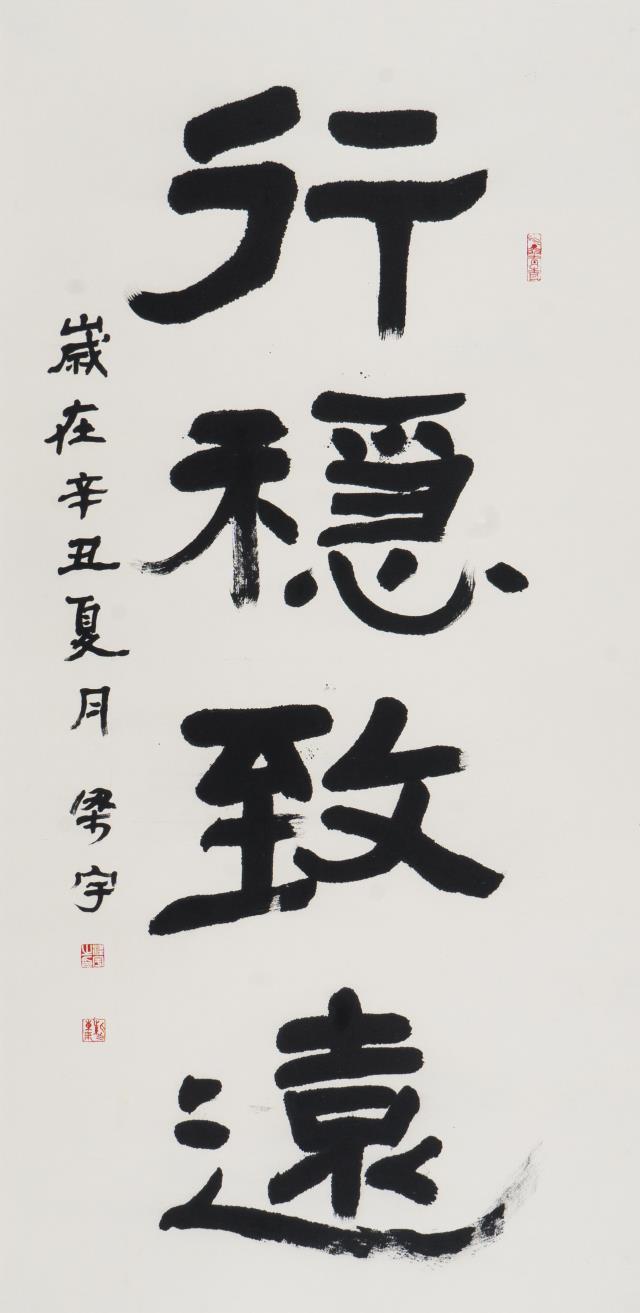 行穩致遠
歲在辛丑夏月 梁宇